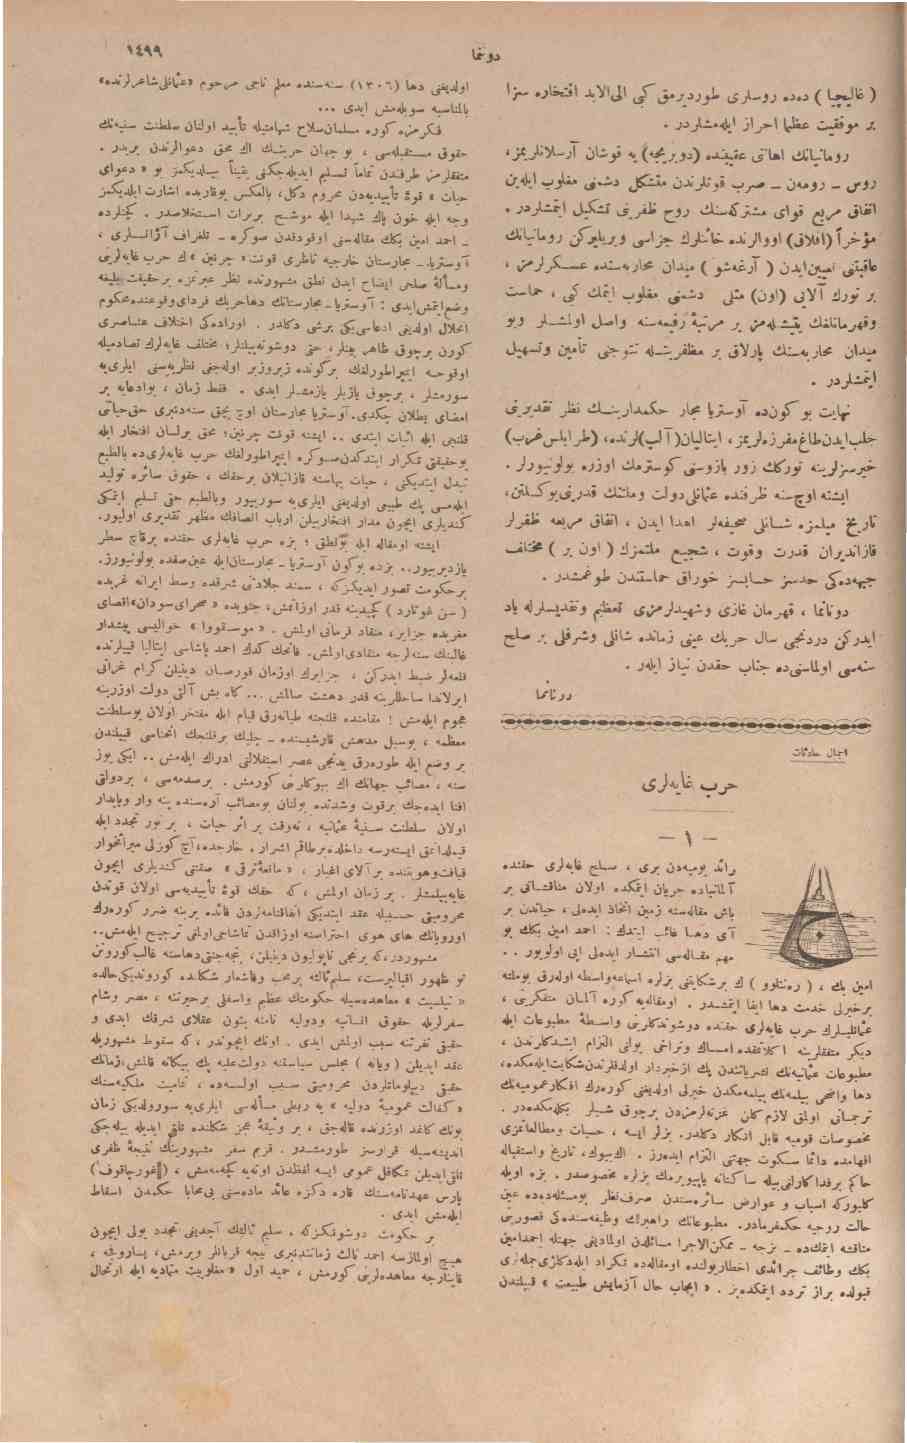 دونما
١٤٩٩
( غاليچيا ) ده ده روسلرى طورديرمق كبى الى الابد افتخاره سزا
بر موفقيت عظما احراز ايله مشلردر .
رومانيانك اهانتى عقيبنده (دوبريجه) يه قوشان آرسلانلريمز،
روس ـ رومەن ـ صرب قوتلرندن متشكل دشمنى مغلوب ايله ين
اتفاق مربع قواى مشتركه سنك روح ظفرينى تشكيل ايتمشلردر .
مؤخراً (افلاق) اووالرنده خائنلرك جزاسى ويريليركن رومانيانك
عاقبتنى تعيين ايدن ( آرغه شو ) ميدان محاربه سنده عسكرلرمز ،
بر تورك آلايى (اون) مثلى دشمنى مغلوب ايتمك كبى ، حماست
وقهرمانلغك يتيشيله مز بر مرتبۀ رفيعه سنه واصل اولمشلر وبو
ميدان محاربه سنك پارلاق بر مظفريتله نتوجنى تأمين وتسهيل
ايتمشلردر .
نهايت بو كون ده آوستريا مجار حكمدارينك نظر تقديرينى
جلب ايدن طاغ مفرزه لريمز ، ايتاليان(آلپ)لرنده، (طرابلس غرب)
خيرسزلرينه توركك زور بازوسنى كوسترمك اوزره بولونيورلر .
ايشته اوچ سنه ظرفنده عثمانلى دولت وملتنك قدرتنى يوكسلتن،
تاريخ ميلمزه شانلى صحيفه لر اهدا ايدن ، اتفاق مربعه ظفرلر
قازانديران قدرت وقوت ، شجيع ملتمزك ( اون بر ) مختلف
جبهه ده كى حدسز حسابسز خوارق حماستندن طوغمشدر .
دونانما ، قهرمان غازى وشهيدلرمزى تعظيم وتقديسلرله ياد
ايدركن دردنجى سال حربك عينى زمانده شانلى وشرفلى بر صلح
سنه سى اولماسنى ده جناب حقدن نياز ايلر .
دونانما
اجمال حادثات
حرب غايه لرى
— ١ —
رائد يوميه دن برى ، صلح غايه لرى حقنده
آلمانياده جريان ايتمكده اولان مناقشاتى بر
باش مقاله سنه زمين اتخاذ ايده لى ، حياتدن بر
آى دها غائب ايتدك : احمد امين بكك بو
مهم مقاله سى انتشار ايده لى اولويور . .
امين بك ، ( ره نتلوو ) ك بر شكايتنى بزلره اسماعه واسطه اوله رق بوملته
بر خيرلى خدمت دها ايفا ايتمشدر . اومقاله يه كوره آلمان متفكرينى ،
عثمانليلرك حرب غايه لرى حقنده دوشوندكلرينى واسطۀ مطبوعات ايله
ديكر متفقلرينه اكلاتمقده امساك وتراخى يولنى التزام ايتدكلرندن ،
مطبوعات عثمانيه نك نشرياتندن پك از خبردار اولدقلرندن شكايت ايله مكده،
دها واضحى بيلمه نك بيلمه مكدن خيرلى اولديغنى كوره رك افكار عموميه نك
ترجمانى اولمق لازم كلن غزته لرمزدن برچوق شيلر بكله مكده در .
مخصوصات قوميه قابل انكار دكلدر. بزلر ايسه ، حسيات ومطالعاتمزى
افهامده دائما سكوت جهتنى التزام ايده رز . اك بيوك ، تاريخ واستقباله
حاكم بر فداكارانى بيله ساكتانه ياپيويرمك بزلره مخصوصدر . بزه اويله
كليوركه اسباب و عوارض سائره سندن صرف نظر بومسئله ده ده عين
حالت روحيه حكمفرمادر. مطبوعاتك راهبرلك وظيفه سنده كى قصورينى
مناقشه ايتمكده ـ بزجه ـ ممكن الاجرا مسائلدن اولماديغى جهتله احمد امين
بكك وظائف جرائدى اخطار يولنده اومقاله ده تكرار ايله دكلرى جمله لرى
قبولده براز تردد ايتمكده يز . « ايجاب حال آزمايش طبيعت » قبيلندن
اولديغنى دها (١٣٠٦) سنه سنده معلم ناجى مرحوم «عثمانلى شاعرلرنده»
بالمناسبه سويله مش ايدى ...
فكرمزه كوره مسلمان سلاح شهامتيله تأييد اولنان سلطنت سنيه نك
حقوق مستقبله سى ، بو جهان حربنك اك محق دعوالرندن بريدر .
متفقلرمز طرفندن تماماً تسليم ايديله جكنى يقيناً بيلديكمز بو « دعواى
حيات » قوۀ تأييديه دن محروم دكل، بالعكس يوقاريده اشارت ايلديكمز
وجه ايله خون پاك شهدا ايله موشح بربرات استخلاصدر . كچنلرده
ـ احمد امين بكك مقاله سنى اوقودقدن صوكره ـ تلغراف آژانسلرى ،
آوستريا ـ مجارستان خارجيه ناظرى قونت « چرنين » ك حرب غايه لرينى
ومسألۀ صلحى ايضاح ايدن نطق مشهورنده نظر عبرتمزه بر حقيقت بليغه
وضع ايتمش ايدى : آوستريا ـ مجارستانك دها حربك فرداى وقوعنده محكوم
انحلال اولديغى ادعاسى يكى برشى دكلدر . اوراده كى اختلاف عناصرى
كورن برچوق ظاهر بينلر، حتى دوشونه بيلنلر؛ مختلف غايه لرك تصادميله
اوقوجه ايمپراطورلغك بركونده زيروزبر اوله جغى نظريه سنى ايلرى يه
سورمشلر ، برچوق يازيلر يازمشلر ايدى . فقط زمان ، بوادعايه بر
امضاى بطلان چكدى. آوستريا مجارستان اوچ بچق سنه دنبرى حق حياتنى
قلنجى ايله اثبات ايتدى .. ايشته قونت چرنين؛ محق برلسان افتخار ايله
بوحقيقتى تكرار ايتدكدن صوكره ايمپراطورلغك حرب غايه لرى ده بالطبع
تبدل ايتديكنى ، حيات بهاسنه قازانيلان برحقك ، حقوق سائره توليد
ايله مسى پك طبيعى اولديغنى ايلرى يه سوريور وبالطبع حتى تسليم ايتمكى
كنديلرى ايچون مدار افتخار بيلن ارباب انصافك مظهر تقديرى اوليور.
ايشته اومقاله ايله بونطق ؛ بزه حرب غايه لرى حقنده برقاچ سطر
يازديريور.. بزده بوكون آوستريا ـ مجارستان ايله عين صفده بولونيورز.
برحكومت تصور ايديكزكه ، سمند جلادتى شرقده وسط ايرانه غربده
( سن غوتارد ) كچيدينه قدر اوزانمش، جنوبده « صحراى سودان»اقصاى
مغربده جزاير، منقاد فرمانى اولمش . « موسقووا » حواليسى پيشدار
غالبنك سنه لرجه منقادى اولمش. فاتحك كدك احمد پاشاسى ايتاليا قييلرنده
قلعه لر ضبط ايدركن ، جزايرك اوزمان قورصان دينيلن كرام غزاتى
ايرلاندا ساحللرينه قدر دهشت صالمش ... كاه بش آلتى دولت اوزرينه
هجوم ايله مش ؛ مقامنده فلجنه طيانه رق قيام ايله مفتخر اولان بوسلطنت
معظمه ، بوسيل مدهش قارشيسنده ـ چليك برقلنجك انحناسى قبيلندن
بر وضع ايله طوره رق يدنجى عصر استقلالنى ادراك ايله مش .. ايكى يوز
سنه ، مصائب جهانك اك بيوكلرنى كورمش . برصدمه سى ، بردولتى
افنا ايده جك برقوت وشدتده بولنان بومصائب آره سنده ينه وار وپايدار
اولان سلطنت سنيۀ عثمانيه ، نه وقت بر اثر حيات ، بر نور تجدد ايله
قيملدانمق ايسته رسه داخلده برطاقم اشرار . خارجده، آچ كوزلى ميراثخوار
قيافت وهويتنده بر آلاى اغيار ، « مانعۀ ترقى » صفتنى كنديلرى ايچون
غايه بيلمشلر . بر زمان اولمش ، كه حقك قوۀ تأييديه سى اولان قوتدن
محروميتى حسبيله عقد ايتديكى اتفاقنامه لردن فائده يرينه ضرر كوره رك
اوروپانك هاى هوى احتراسنه اوزاقدن تماشاجى اولمغى ترجيح ايله مش..
مشهوردر، كه برنجى ناپوليون دينيلن، پنجه جنتى دهاسنه غالب كورونن
نو ظهور اقبال پرست، سليم ثالثه برمحب وفاشعار شكلنده كوروندیكى حالده
« تيلسيت » معاهده سيله حكومتك عظيم واسفلى برحيرتنه ، مصر وشام
سفرلريله حقوق انسانيه ودوليه نامنه بتون عقلاى شرقك ابدى و
حقيقى نفرتنه سبب اولمش ايدى . اونك ايچوندر ، كه سقوط مشهوريله
عقد ايديلن ( ويانه ) مجلس سياسنه دولت عليه پك بيكانه قالمش، زمانك
حقيقى ديپلوماتلردن محروميتى سبب اولسه ده ، تماميت ملكيه سنك
« كفالت عموميۀ دوليه » يه ربطى مسأله سى ايلرى يه سورولديكى زمان
بونك كاغد اوزرنده قاله جق ، بر وثيقۀ عجز شكلنده تلقى ايديله بيله جكى
انديشه سيله قرارسز طورمشدر . قريم سفر مشهورينك نتيجۀ ظفرى
تلقى ايديلن تكافل عمومى ايسه لفظدن اوته يه كچمه مش ، (غورچاقوف)
پارس عهدنامه سنك قاره دكزه عائد ماده سنى بى محابا حكمدن اسقاط
ايله مش ايدى .
بر حكومت دوشونكزكه . سليم ثالثك آچديغى تجدد يولى ايچون
هيچ اولمازسه احمد ثالث زمانندنبرى نيجه قربانلر ويرمش، پساروفجه ،
قاينارجه معاهده لرينى كورمش ، حميد اول « مغلوبيت متماديه ايله ارتحال